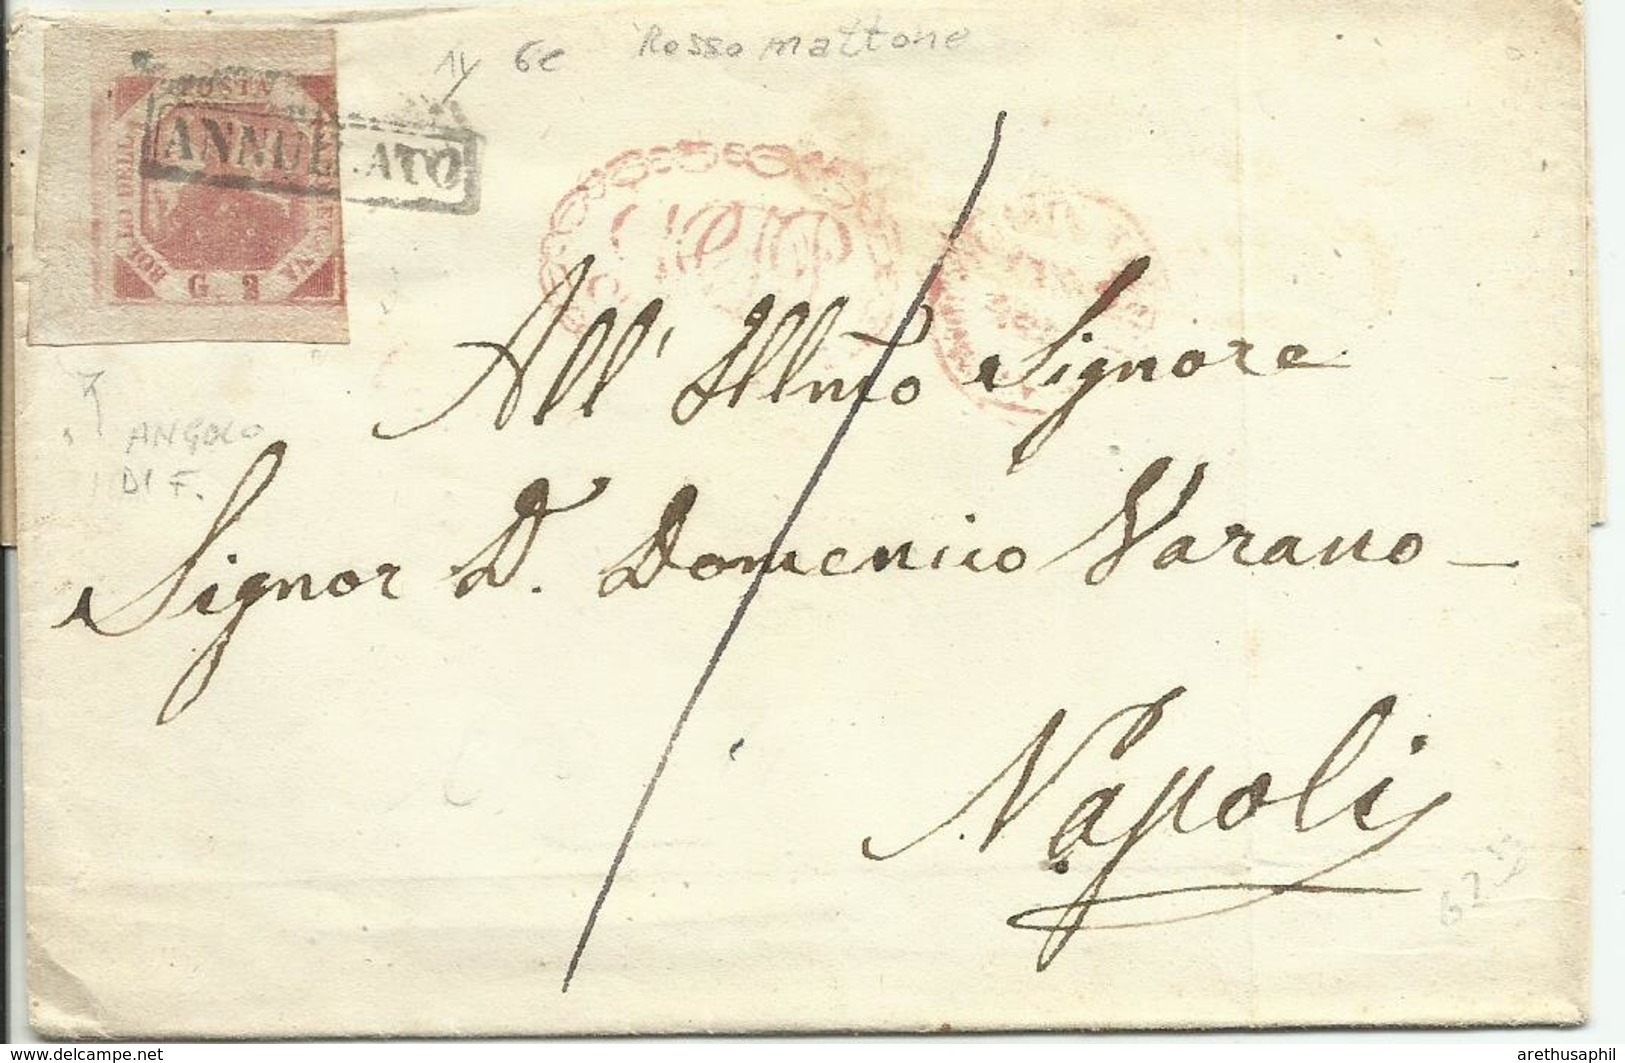 6e Rosso mattone
POSTA
ANNULLATO
BOLLO DELLA
G. 2
ANGOLO
DI F.
All' Illmo Signore
Signor D. Domenico Varano
Napoli
delcampe.net
arethusaphil